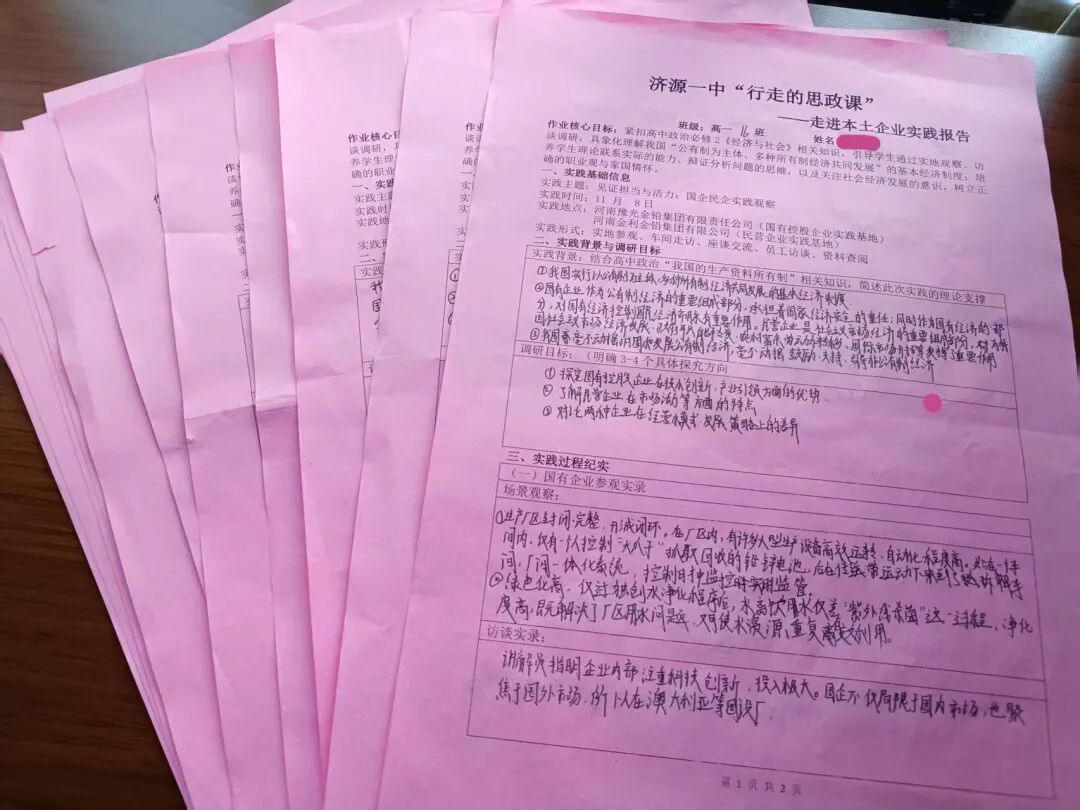 济源一中“行走的思政课”
——走进本土企业实践报告
班级：高一 16 班 姓名
作业核心目标：紧扣高中政治必修2《经济与社会》相关知识，引导学生通过实地观察、访
谈调研，具象化理解我国“公有制为主体、多种所有制经济共同发展”的基本经济制度；培
养学生理论联系实际的能力、辩证分析问题的思维，以及关注社会经济发展的意识，树立正
确的职业观与家国情怀。
一、实践基础信息
实践主题：见证担当与活力：国企民企实践观察
实践时间：11 月 8 日
实践地点：河南豫光金铅集团有限责任公司（国有控股企业实践基地）
河南金利金铅集团有限公司（民营企业实践基地）
实践形式：实地参观、车间走访、座谈交流、员工访谈、资料查阅
二、实践背景与调研目标
实践背景：结合高中政治“我国的生产资料所有制”相关知识，简述此次实践的理论支撑
①我国实行以公有制为主体，多种所有制经济共同发展的基本经济制度
②国有企业作为公有制经济的重要组成部分，承担着国家经济安全的重任；同时作为国有经济的一部
分，对国有经济控制国民经济命脉有重要作用。民营企业是社会主义市场经济的重要组成部分，对为我
国社会主义市场经济发展、政府职能转变、农村富余劳动力转移、国际市场开拓等发挥了重要作用
③我国毫不动摇巩固和发展公有制经济，毫不动摇鼓励、支持、引导非公有制经济
调研目标：（明确 3-4 个具体探究方向
① 探究国有控股企业在技术创新、产业引领方面的优势
② 了解民营企业在市场活力等方面的特点
③ 对比两种企业在经营模式、发展策略上的差异
三、实践过程纪实
（一）国有企业参观实录
场景观察：
①生产厂区封闭、完整，形成闭环。在厂区内，有许多大型生产设备高效运转，自动化程度高。如在一车
间内，仅有一人控制“大爪子”抓取回收的铅锌电池，后在传送带运动下来到
间，厂间一体化系统，控制
②绿色化高，仅过独创水净化程序后，水离饮用水仅差“紫外线杀菌”这一过程，净化
度高，既解决了厂区用水问题，又可使水资源重复高效利用。
访谈实录：
讲解员指明企业内部注重科技创新，投入极大。国企不仅局限于国内市场，也聚
焦于国外市场，所以在澳大利亚等国设厂
第 1 页 共 2 页